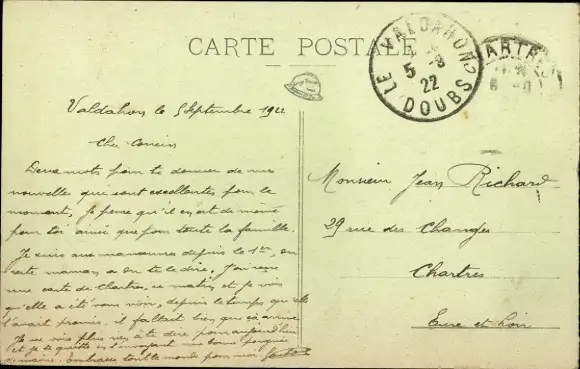 CARTE POSTALE
LE VALDAHON
5 -9
22
DOUBS
Valdahon le 5 Septembre 1922
Cher Cousin
Deux mots pour te donner de mes
nouvelles qui sont excellentes pour le
moment, Je pense qu'il en est de même
pour toi ainsi que pour toute la famille.
Je suis aux manœuvres depuis le 1er, on
maman a du te le dire, J'ai reçu
une carte de Chartres ce matin, et je vois
qu'elle a été vous voir, depuis le temps qu'elle
l'avait promis. il fallait bien que ça arrive
Je ne vois plus rien à te dire pour aujourd'hui
et je te quitte en t'envoyant une bonne poignée
de mains. Embrasse tout le monde pour moi
Monsieur Jean Richard
29 rue des Changes
Chartres
Eure et Loir